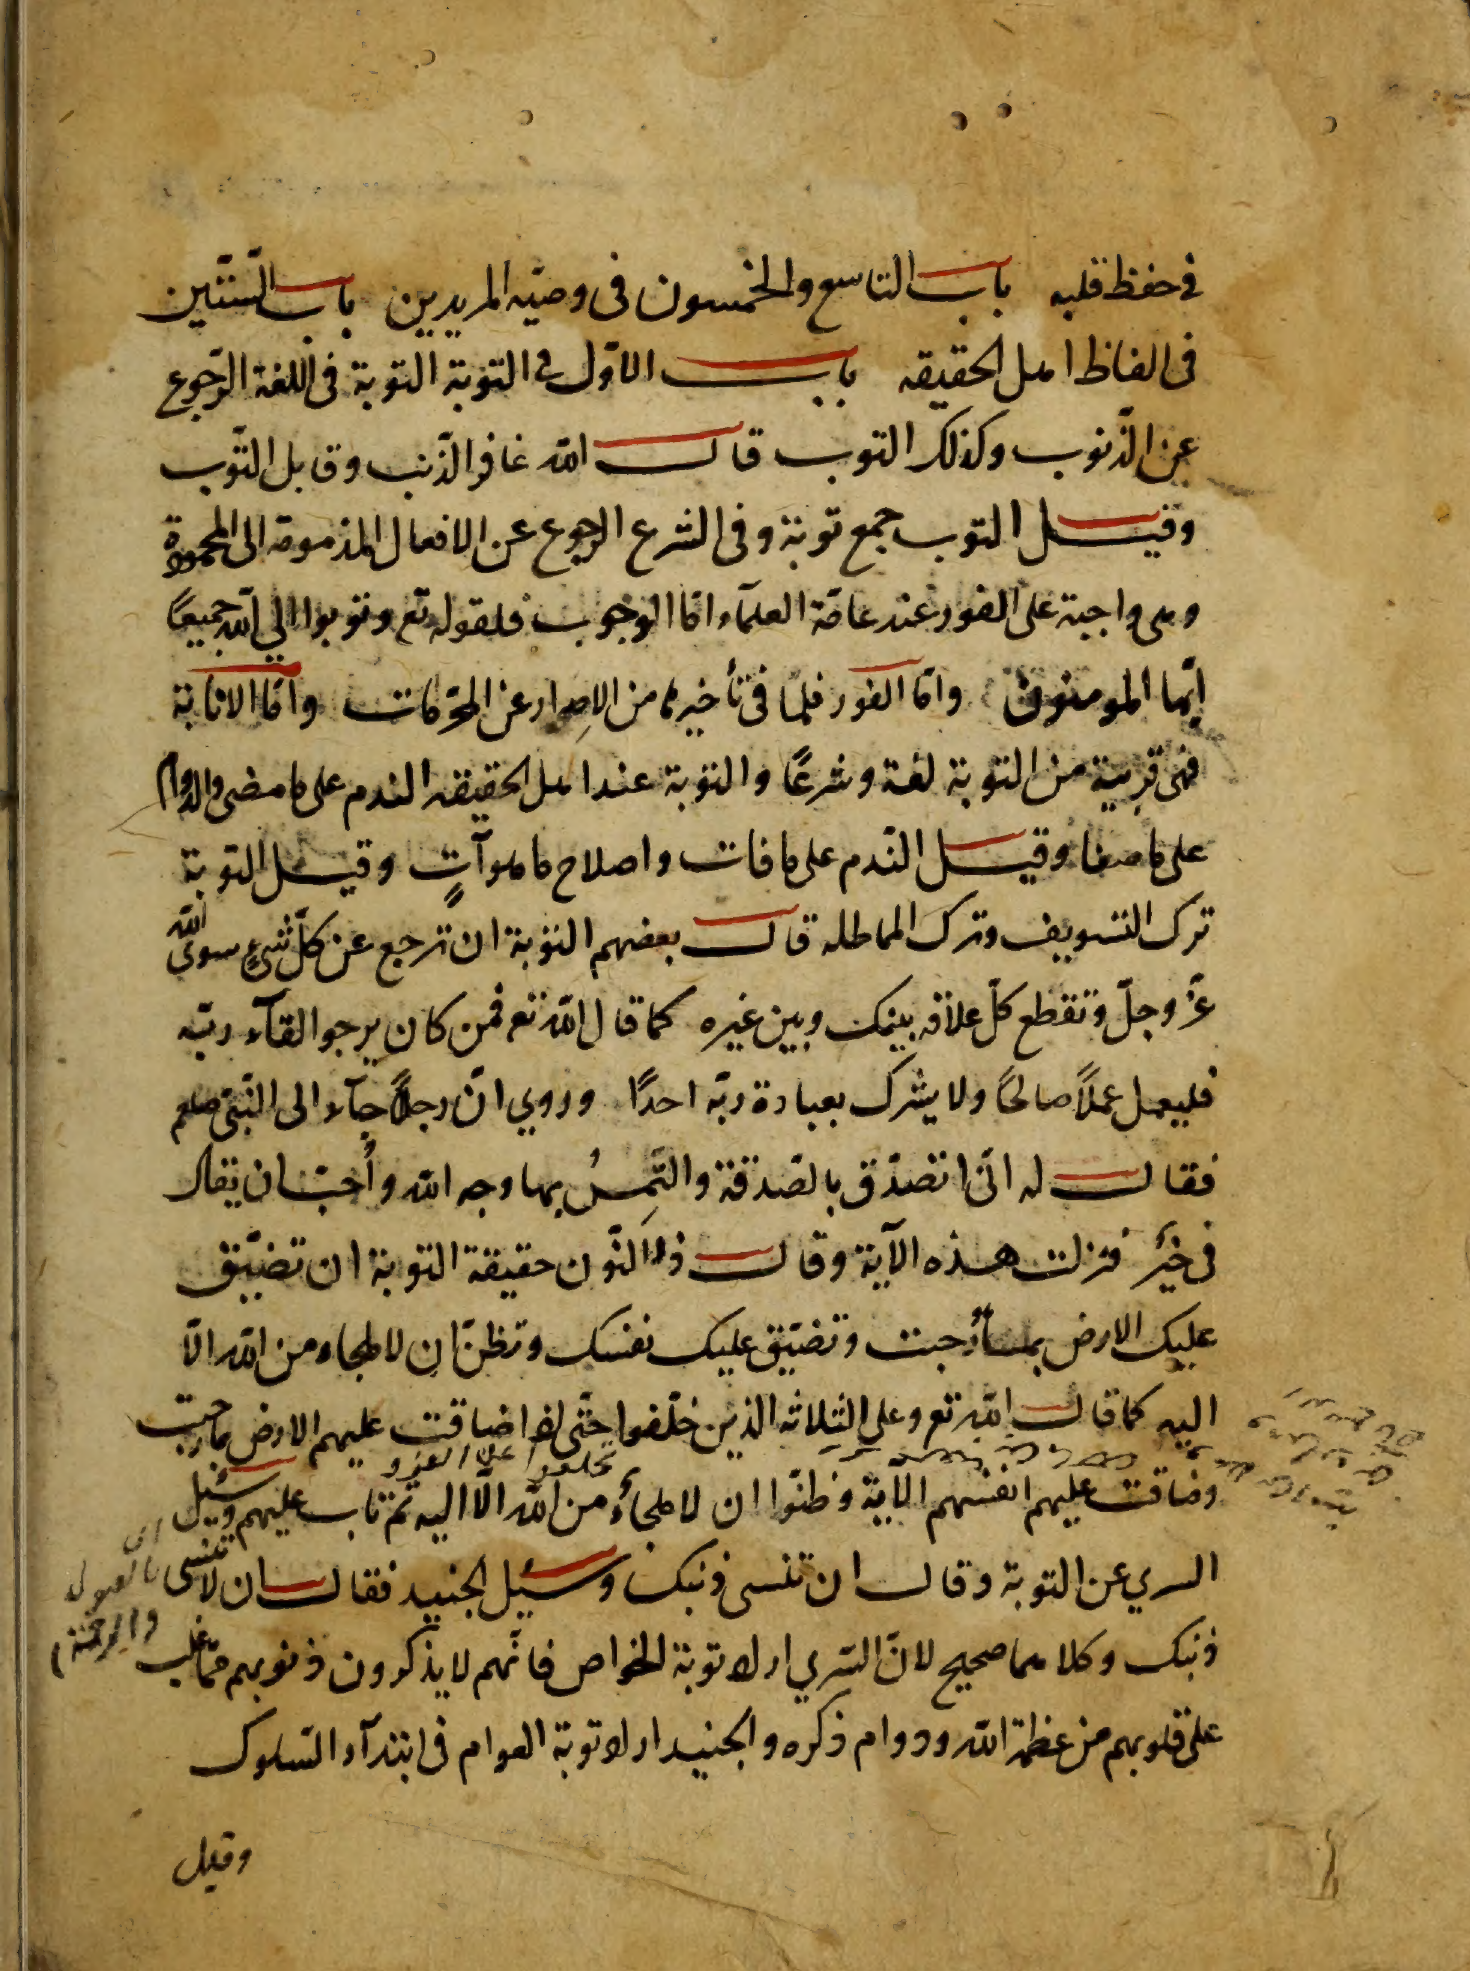 في حفظ قلبه باب التاسع والخمسون في وصيّه المريدين باب السّتّين
في الفاظ اهل الحقيقه باب الاوّل في التوبة التوبة في اللغة الرّجوع
عن الذّنوب وكذلك التوب قال اللّه غافر الذّنب وقابل التّوب
وقيل التوب جمع توبة وفي الشرع الرجوع عن الافعال المذمومة الى المحمودة
وهى واجبة على الفور عند عامّة العلمآء امّا الوجوب فلقوله تع وتوبوا الي اللّه جميعًا
ايّها المومنون وامّا الفور فلما في تأخيرها من الاصرار عن المحرّمات وامّا الانابة
فهى قريبة من التوبة لغة وشرعًا والتوبة عند اهل الحقيقه الندم على ما مضى والدوام
على ما صفا وقيل النّدم على ما فات واصلاح ما هو آتٍ وقيل التوبة
ترك التسويف وترك المماطله قال بعضهم التوبة ان ترجع عن كلّ شيءٍ سوى اللّه
عزّ وجلّ وتقطع كلّ علاقه بينك وبين غيره كما قال اللّه تع فمن كان يرجوا لقآء ربّه
فليعمل عملًا صالحًا ولا يشرك بعبادة ربّه احدًا وروي انّ رجلًا جآء الى النّبيّ صلعم
فقال له انّى اتصدّق بالصّدقة والتَمِسُ بها وجه اللّه وأُحبّ ان يقال
فيّ خيرٌ فنزلت هذه الآية وقال ذو النّون حقيقة التوبة ان تضيّق
عليك الارض بما رحبت وتضيّق عليك نفسك وتظنّ ان لا ملجاء من اللّه الّا
اليه كما قال اللّه تع وعلى الثلاثه الذين خلّفوا حتّى اذا ضاقت عليهم الارض بما رحبت
وضاقت عليهم انفسهم الآية وظنّوا ان لا ملجأ من اللّه الّا اليه ثم تاب عليهم وسئيل
السري عن التوبة وقال ان تنسى ذنبك وسئيل الجنيد فقال ان لا تنسى
ذنبك وكلاهما صحيح لانّ السّري اراد توبة الخواص فانّهم لا يذكرون ذنوبهم ممّا غلب
على قلوبهم من عظمة اللّه ودوام ذكره والجنيد اراد توبة العوام في ابتدآء السّلوك
وقيل